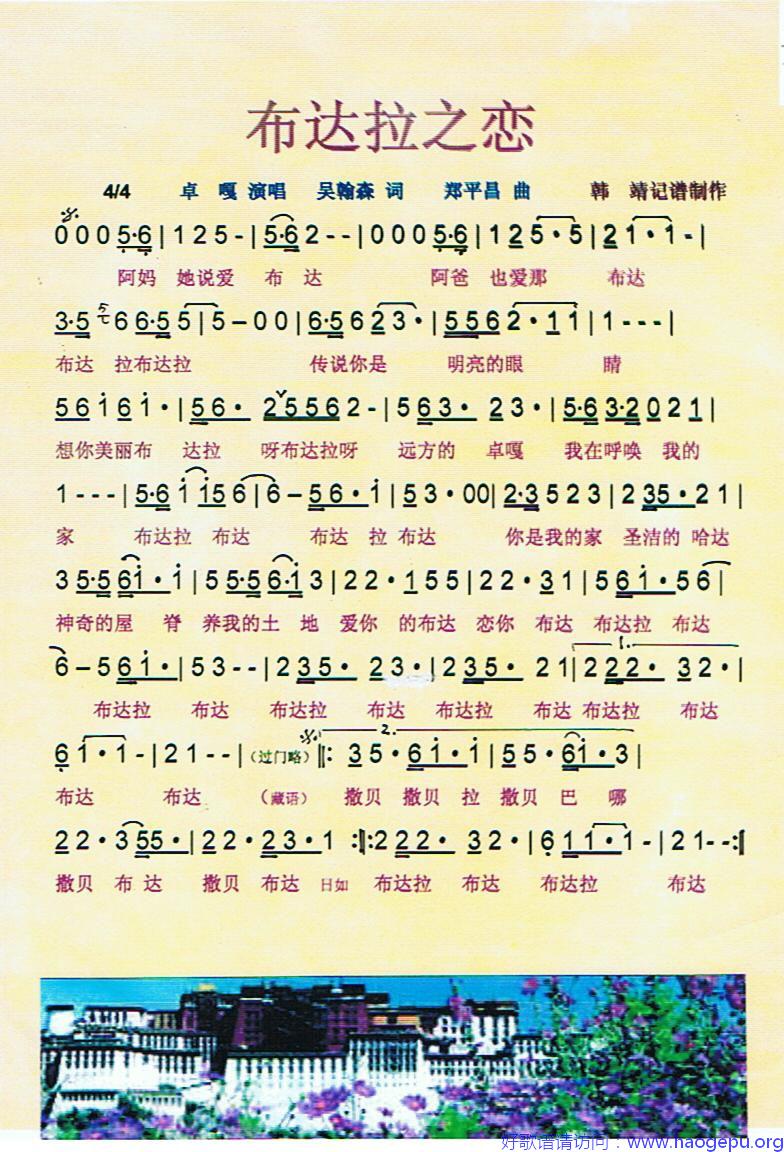 布达拉之恋
4/4 卓 嘎 演唱 吴翰森 词 郑平昌 曲 韩 靖记谱制作
0 0 0 5·6 | 1 2 5 - | 5·6 2 - - | 0 0 0 5·6 | 1 2 5 · 5 | 2 1 · 1 - |
阿妈 她说爱 布 达 阿爸 也爱那 布达
3·5 6 6·5 5 | 5 – 0 0 | 6·5 6 2 3 · | 5 5 6 2 · 1 1 | 1 - - - |
布达 拉布达拉 传说你是 明亮的眼 睛
5 6 i 6 i · | 5 6 · 2 5 5 6 2 - | 5 6 3 · 2 3 · | 5·6 3·2 0 2 1 |
想你美丽布 达拉 呀布达拉呀 远方的 卓嘎 我在呼唤 我的
1 - - - | 5·6 i i 5 6 | 6 – 5 6 · i | 5 3 · 0 0 | 2·3 5 2 3 | 2 3 5 · 2 1 |
家 布达拉 布达 布达 拉 布达 你是我的家 圣洁的 哈达
3 5·5 6 i · i | 5 5·5 6·i 3 | 2 2 · 1 5 5 | 2 2 · 3 1 | 5 6 i · 5 6 |
神奇的屋 脊 养我的土 地 爱你 的布达 恋你 布达 布达拉 布达
1.
6 – 5 6 i · | 5 3 - - | 2 3 5 · 2 3 · | 2 3 5 · 2 1 | 2 2 2 · 3 2 · |
布达拉 布达 布达拉 布达 布达拉 布达 布达拉 布达
2.
6 1 · 1 - | 2 1 - - | (过门略) ‖: 3 5 · 6 i · i | 5 5 · 6 i · 3 |
布达 布达 (藏语) 撒贝 撒贝 拉 撒贝 巴 哪
2 2 · 3 5 5 · | 2 2 · 2 3 · 1 :‖: 2 2 2 · 3 2 · | 6 1 1 · 1 - | 2 1 - - :‖
撒贝 布 达 撒贝 布达 日如 布达拉 布达 布达拉 布达
好歌谱请访问：www.haogepu.org